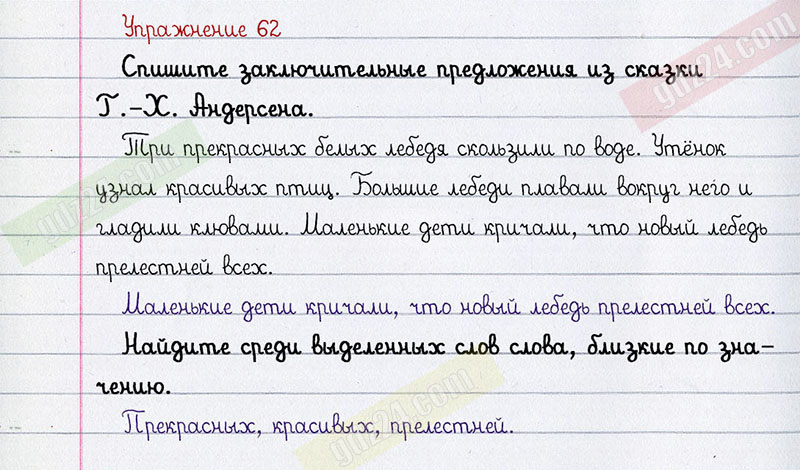 Упражнение 62
Спишите заключительные предложения из сказки
Г.-Х. Андерсена.
Три прекрасных белых лебедя скользили по воде. Утёнок
узнал красивых птиц. Большие лебеди плавали вокруг него и
гладили клювами. Маленькие дети кричали, что новый лебедь
прелестней всех.
Маленькие дети кричали, что новый лебедь прелестней всех.
Найдите среди выделенных слов слова, близкие по зна-
чению.
Прекрасных, красивых, прелестней.
gdz24.com
gdz24.com
gdz24.com